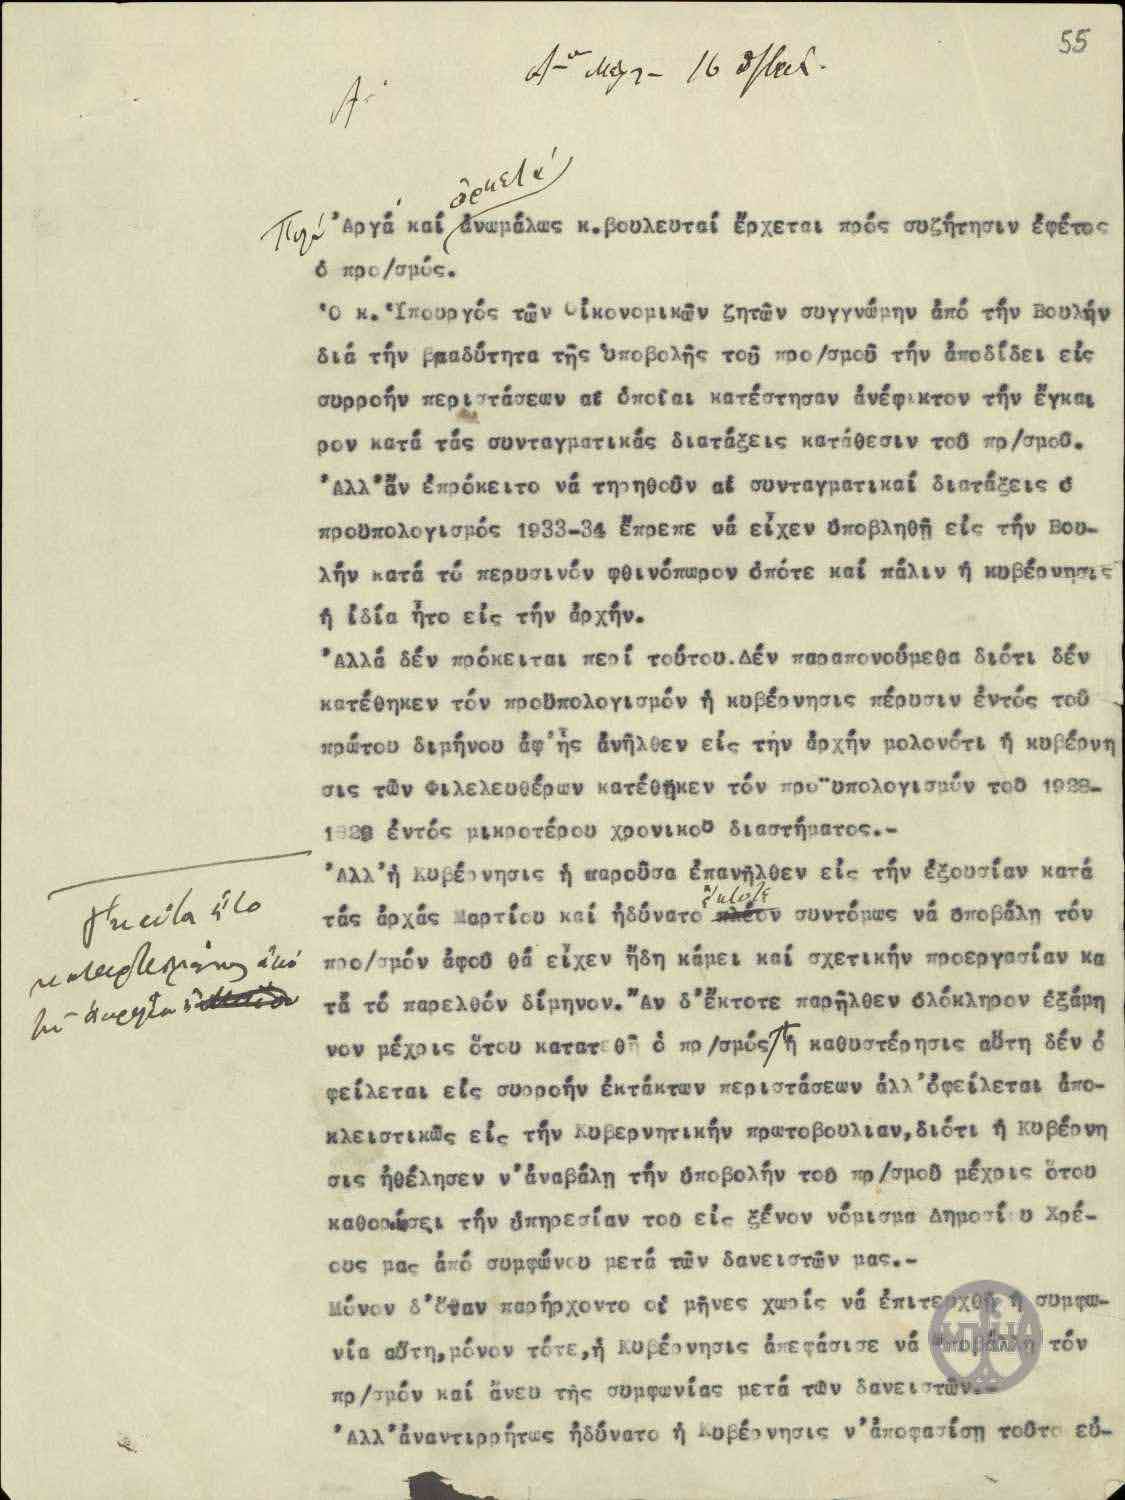 55
16
ἀρκετά
Πολύ Ἀργά καί ἀνωμάλως κ.βουλευταί ἔρχεται πρός συζήτησιν ἐφέτος
ὁ προ/σμός.
Ὁ κ. Ὑπουργός τῶν Οἰκονομικῶν ζητῶν συγγνώμην ἀπό τήν Βουλήν
διά τήν βραδύτητα τῆς ὑποβολῆς τοῦ προ/σμοῦ τήν ἀποδίδει εἰς
συρροήν περιστάσεων αἵ ὁποῖαι κατέστησαν ἀνέφικτον τήν ἔγκαι
ρον κατά τάς συνταγματικάς διατάξεις κατάθεσιν τοῦ πρ/σμοῦ.
Ἀλλ'ἄν ἐπρόκειτο νά τηρηθοῦν αἱ συνταγματικαί διατάξεις ὁ
προϋπολογισμός 1933-34 ἔπρεπε νά εἶχεν ὑποβληθῆ εἰς τήν Βου-
λήν κατά τό περυσινόν φθινόπωρον ὁπότε καί πάλιν ἡ κυβέρνησις
ἡ ἰδία ἦτο εἰς τήν ἀρχήν.
Ἀλλά δέν πρόκειται περί τούτου.Δέν παραπονούμεθα διότι δέν
κατέθηκεν τόν προϋπολογισμόν ἡ κυβέρνησις πέρυσιν ἐντός τοῦ
πρώτου διμήνου ἀφ'ἧς ἀνῆλθεν εἰς τήν ἀρχήν μολονότι ἡ κυβέρνη
σις τῶν Φιλελευθέρων κατέθηκεν τόν προϋπολογισμόν τοῦ 1928-
1929 ἐντός μικροτέρου χρονικοῦ διαστήματος.-
Ἀλλ'ἡ Κυβέρνησις ἡ παροῦσα ἐπανῆλθεν εἰς τήν ἐξουσίαν κατά
ἔκτοτε
τάς ἀρχάς Μαρτίου καί ἠδύνατο πλέον συντόμως νά ὑποβάλῃ τόν
προ/σμόν ἀφοῦ θά εἶχεν ἤδη κάμει καί σχετικήν προεργασίαν κα
τά τό παρελθόν δίμηνον. Ἄν δ'ἔκτοτε παρῆλθεν ὁλόκληρον ἑξάμη
νον μέχρις ὅτου κατατεθῆ ὁ πρ/σμός ἡ καθυστέρησις αὕτη δέν ὀ
φείλεται εἰς συρροήν ἐκτάκτων περιστάσεων ἀλλ'ὀφείλεται ἀπο-
κλειστικῶς εἰς τήν Κυβερνητικήν πρωτοβουλίαν,διότι ἡ Κυβέρνη
σις ἠθέλησεν ν'ἀναβάλῃ τήν ὑποβολήν τοῦ πρ/σμοῦ μέχρις ὅτου
καθορίσει τήν ὑπηρεσίαν τοῦ εἰς ξένον νόμισμα Δημοσίου Χρέ-
ους μας ἀπό συμφώνου μετά τῶν δανειστῶν μας.-
Μόνον δ'ὅταν παρήρχοντο οἱ μῆνες χωρίς νά ἐπιτευχθῆ ἡ συμφω-
νία αὕτη,μόνον τότε,ἡ Κυβέρνησις ἀπεφάσισε νά ὑποβάλλῃ τόν
πρ/σμόν καί ἄνευ τῆς συμφωνίας μετά τῶν δανειστῶν.-
Ἀλλ'ἀναντιρρήτως ἠδύνατο ἡ Κυβέρνησις ν'ἀποφασίσῃ τοῦτο εὐ-